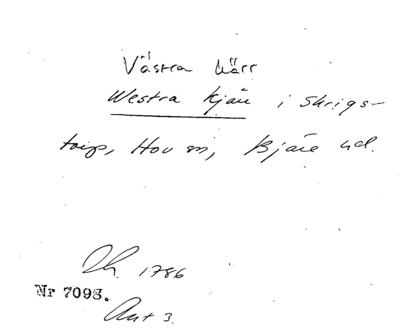 Västra kärr
Westra Kjär i Skrigs-
torp, Hov sn, Bjäre hd.
Lh. 1786
Nr 7098.
Akt 3.